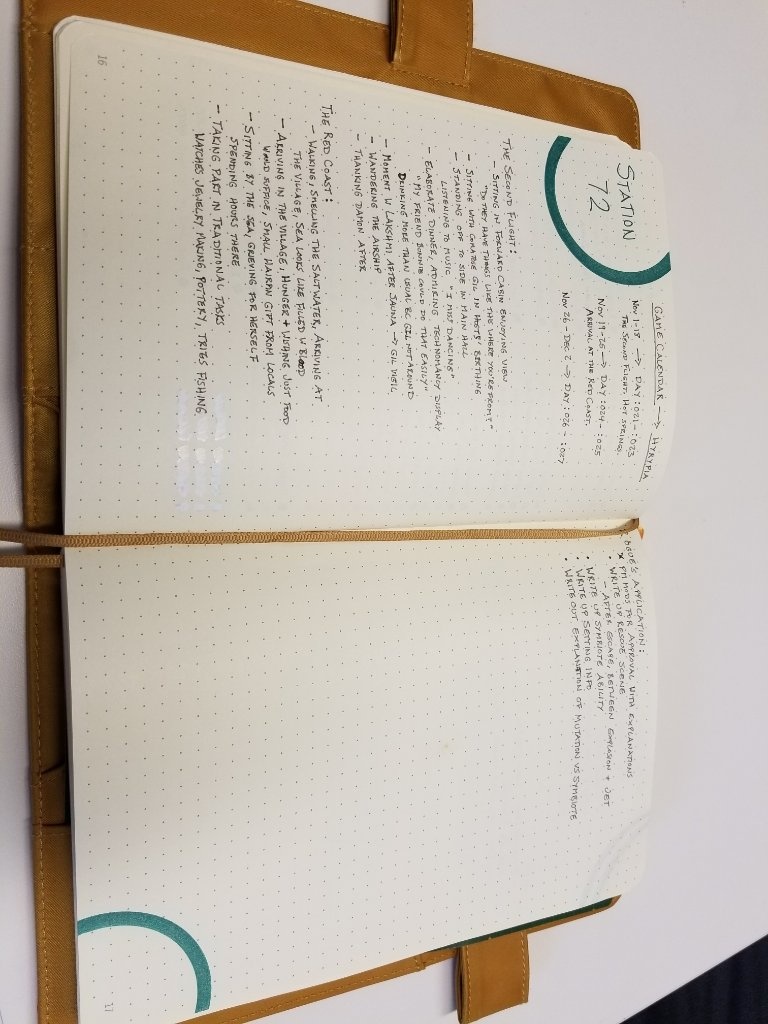 STATION
72
GAME CALENDAR → HYRYPIA
NOV 1-18 → DAY :021 - :023
THE SECOND FLIGHT. HOT SPRINGS.
NOV 19-25 → DAY :024 - :025
ARRIVAL AT THE RED COAST.
NOV 26 - DEC 2 → DAY :026 - :027
THE SECOND FLIGHT:
- SITTING IN FORWARD CABIN ENJOYING VIEW
"DO THEY HAVE THINGS LIKE THIS WHERE YOU'RE FROM?"
- SITTING WITH COMATOSE GIL IN HOSTS' BERTHING
- STANDING OFF TO SIDE IN MAIN HALL
LISTENING TO MUSIC "I MISS DANCING"
- ELABORATE DINNER, ADMIRING TECHNOMANCY DISPLAY
"MY FRIEND BONNIE COULD DO THAT EASILY"
DRINKING MORE THAN USUAL BC GIL NOT AROUND
- MOMENT W LAKSHMI AFTER SAUNA → GIL VIGIL
- WANDERING THE AIRSHIP
- THANKING DAMON AFTER
THE RED COAST:
- WALKING, SMELLING THE SALTWATER, ARRIVING AT
THE VILLAGE, SEA LOOKS LIKE FILLED W BLOOD
- ARRIVING IN THE VILLAGE, HUNGER + WISHING JUST FOOD
WOULD SUFFICE, SMALL HAIRPIN GIFT FROM LOCALS
- SITTING BY THE SEA, GRIEVING FOR HERSELF
SPENDING HOURS THERE
- TAKING PART IN TRADITIONAL TASKS
WATCHES JEWELRY MAKING, POTTERY, TRIES FISHING
16
APPLICATION:
* PM MODS FOR APPROVAL WITH EXPLANATIONS
• WRITE UP RESCUE SCENE
- AFTER ESCAPE, BETWEEN EXPLOSION + JET
• WRITE UP SYMBIOTE ABILITY
• WRITE UP SETTING INFO
• WRITE OUT EXPLANATION OF MUTATION VS SYMBIOTE
17